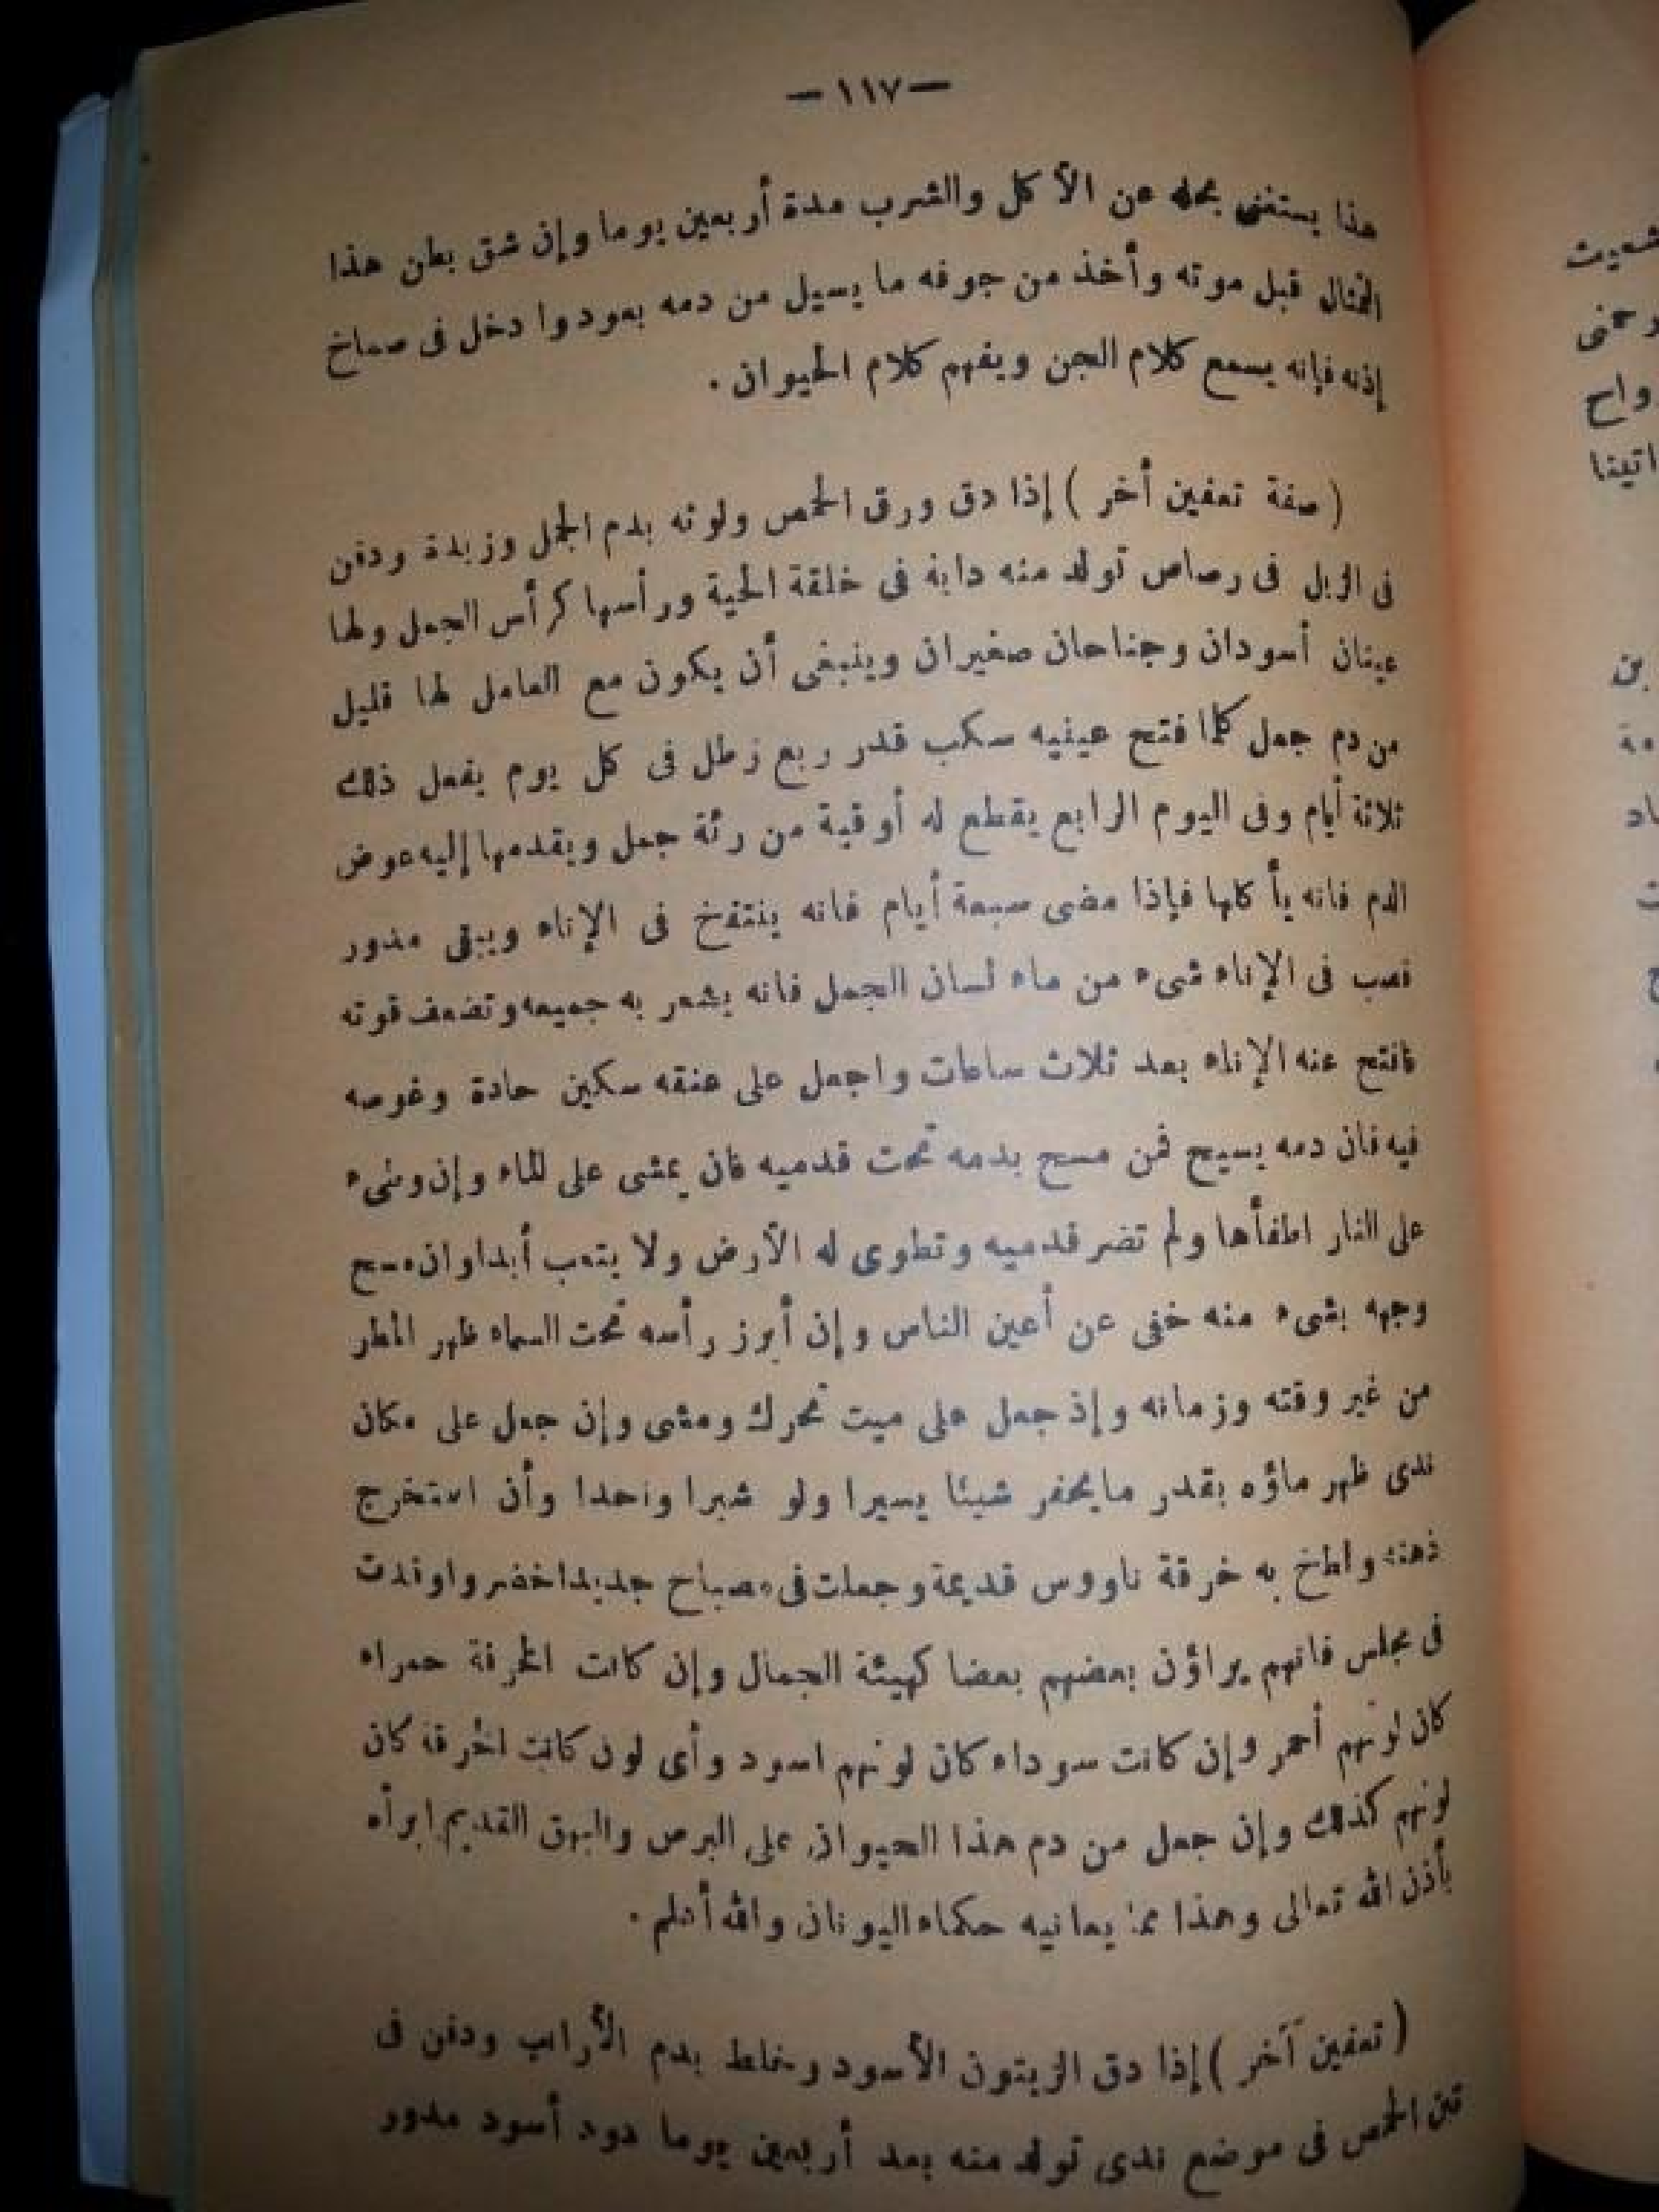 — ١١٧ —
هذا يستغنى بحمله عن الأكل والشرب مدة أربعين يوما وإن شق بطن هذا
التمثال قبل موته وأخذ من جوفه ما يسيل من دمه بعودوا دخل فى صماخ
إذنه فإنه يسمع كلام الجن ويفهم كلام الحيوان .
( صفة تعفين أخر ) إذا دق ورق الحمص ولوثه بدم الجمل وزبدة ودفن
فى الزبل فى رصاص تولد منه دابة فى خلقة الحية ورأسها كرأس الجمل ولها
عينان أسودان وجناحان صغيران وينبغى أن يكون مع العامل لها قليل
من دم جمل كلما فتح عينيه سكب قدر ربع رطل فى كل يوم يفعل ذلك
ثلاثة أيام وفى اليوم الرابع يقطع له أوقية من رئة جمل ويقدمها إليه عوض
الدم فانه يأكلها فإذا مضى سبعة أيام فانه ينتفخ فى الإناء ويبقى مدور
فصب فى الإناء شىء من ماء لسان الجمل فانه يشعر به جميعه وتضعف قوته
فافتح عنه الإناء بعد ثلاث ساعات واجعل على عنقه سكين حادة وغوصه
فيه فان دمه يسيح فمن مسح بدمه تحت قدميه فان يمشى على الماء وإن وطىء
على النار اطفأها ولم تضر قدميه وتطوى له الأرض ولا يتعب أبداوان مسح
وجهه بشىء منه خفى عن أعين الناس وإن أبرز رأسه تحت السماء ظهر المطر
من غير وقته وزمانه وإذ جعل على ميت تحرك ومشى وإن جعل على مكان
ندى ظهر ماؤه بقدر مايحفر شيئا يسيرا ولو شبرا واحدا وأن استخرج
ذهنه والطخ به خرقة ناووس قديمة وجعلت فى مصباح جديد اخضر واوقدت
فى مجلس فانهم يراؤن بعضهم بعضا كهيئة الجمال وإن كانت الخرقة حمراء
كان لونهم أحمر وإن كانت سوداء كان لونهم اسود وأى لون كانت الخرقة كان
لونهم كذلك وإن جعل من دم هذا الحيوان على البرص والبهق القديم ابرأه
بأذن الله تعالى وهذا مما يعانيه حكماء اليونان والله أعلم .
( تعفين آخر ) إذا دق الزيتون الأسود وخلط بدم الأرانب ودفن فى
تبن الحمص فى موضع ندى تولد منه بعد أربعين يوما دود أسود مدور
شعيث
رحمنى
واح
اتيتنا
بن
مة